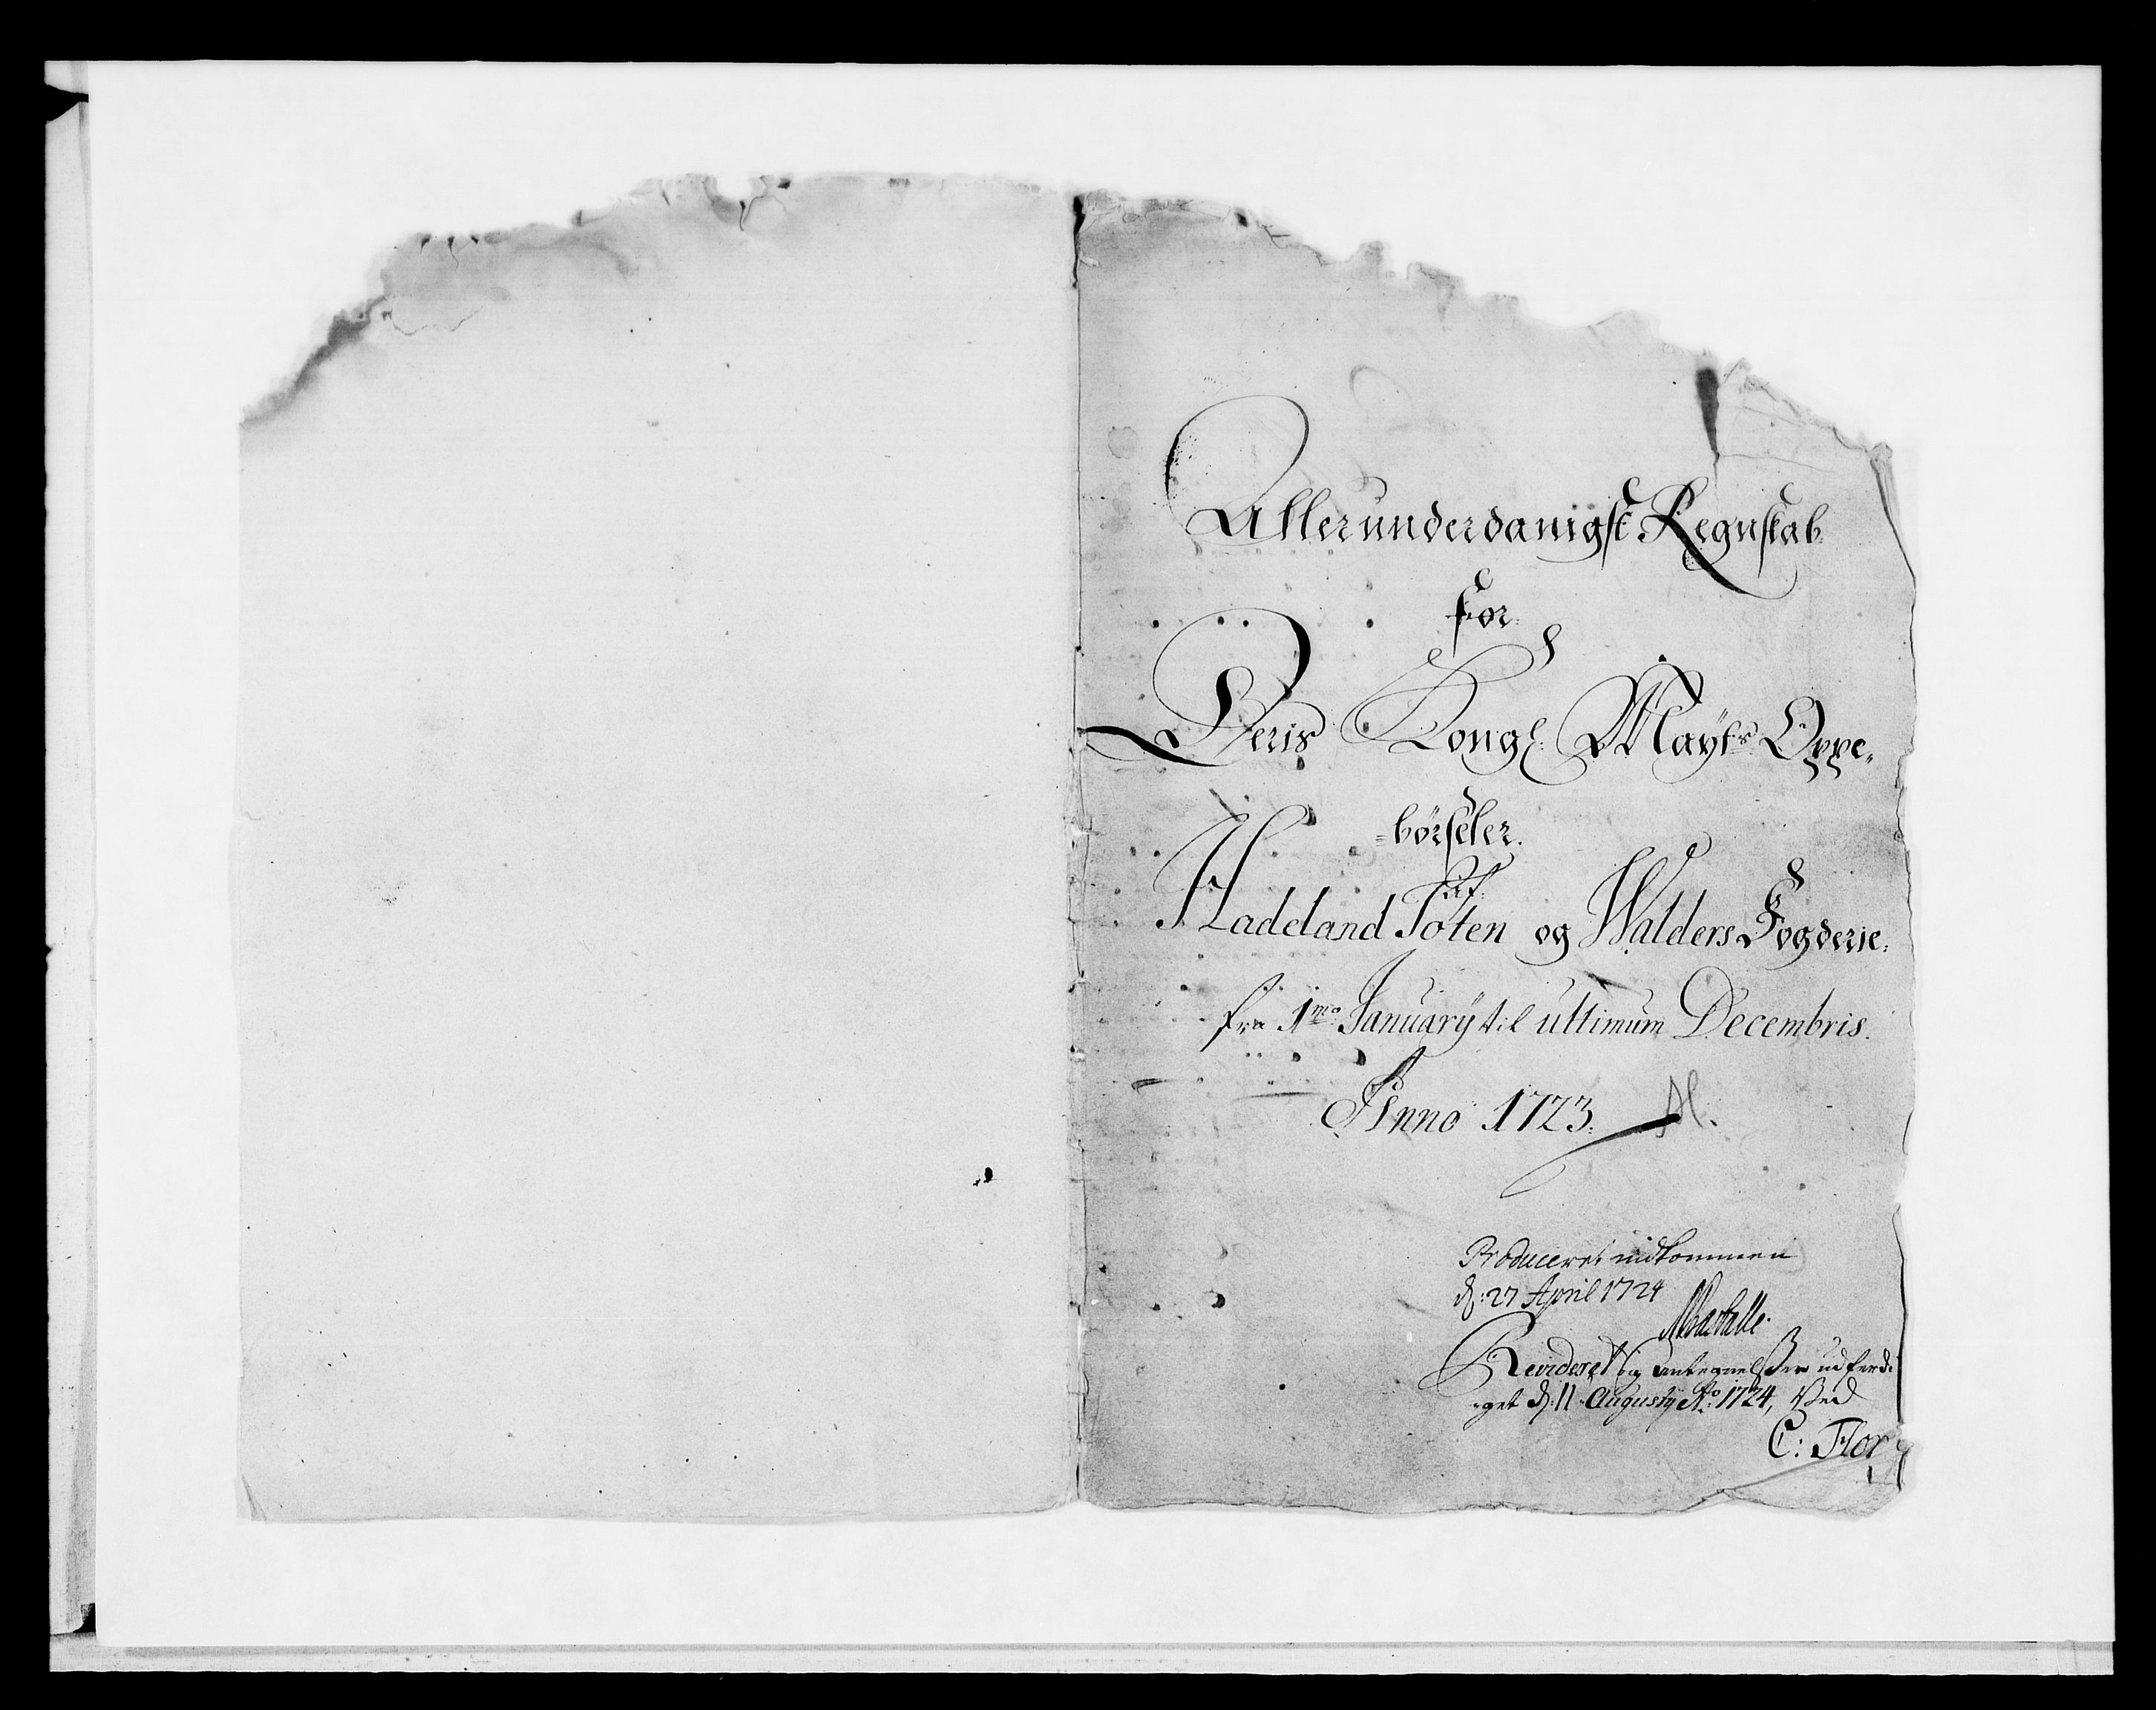 Allerunderdanigst Regnskab
for
Deris Kongl: Mayts Oppe-
-börseler.
af
Hadeland Toten og Walders Fogderie:
fra 1mo January til ultimum Decembris.
Anno 1723.
Produceret indkommen
d: 27 April 1724
Revideret og antegnelsser udferdi
-get d: 11 Augusty Ao: 1724, Ved
C: Flor